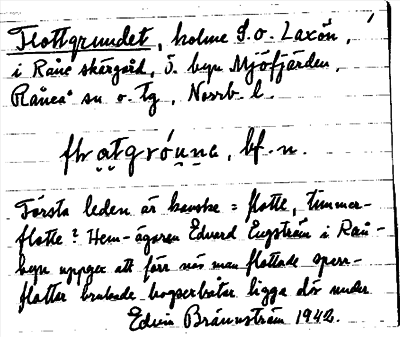 Flottgrundet, holme S.o. Laxön,
i Råne skärgård, Ö. byn Mjöfjärden,
Råneå sn o. tg, Norrb. l.
flɷatgróuna, bf. n.
Första leden är kanske = flotte, timmer-
flotte? Hem-ägaren Edvard Engström i Rån-
byn uppger att förr när man flottade sparr-
flottar brukade bogserbåtar ligga där under
Edvin Brännström 1942.